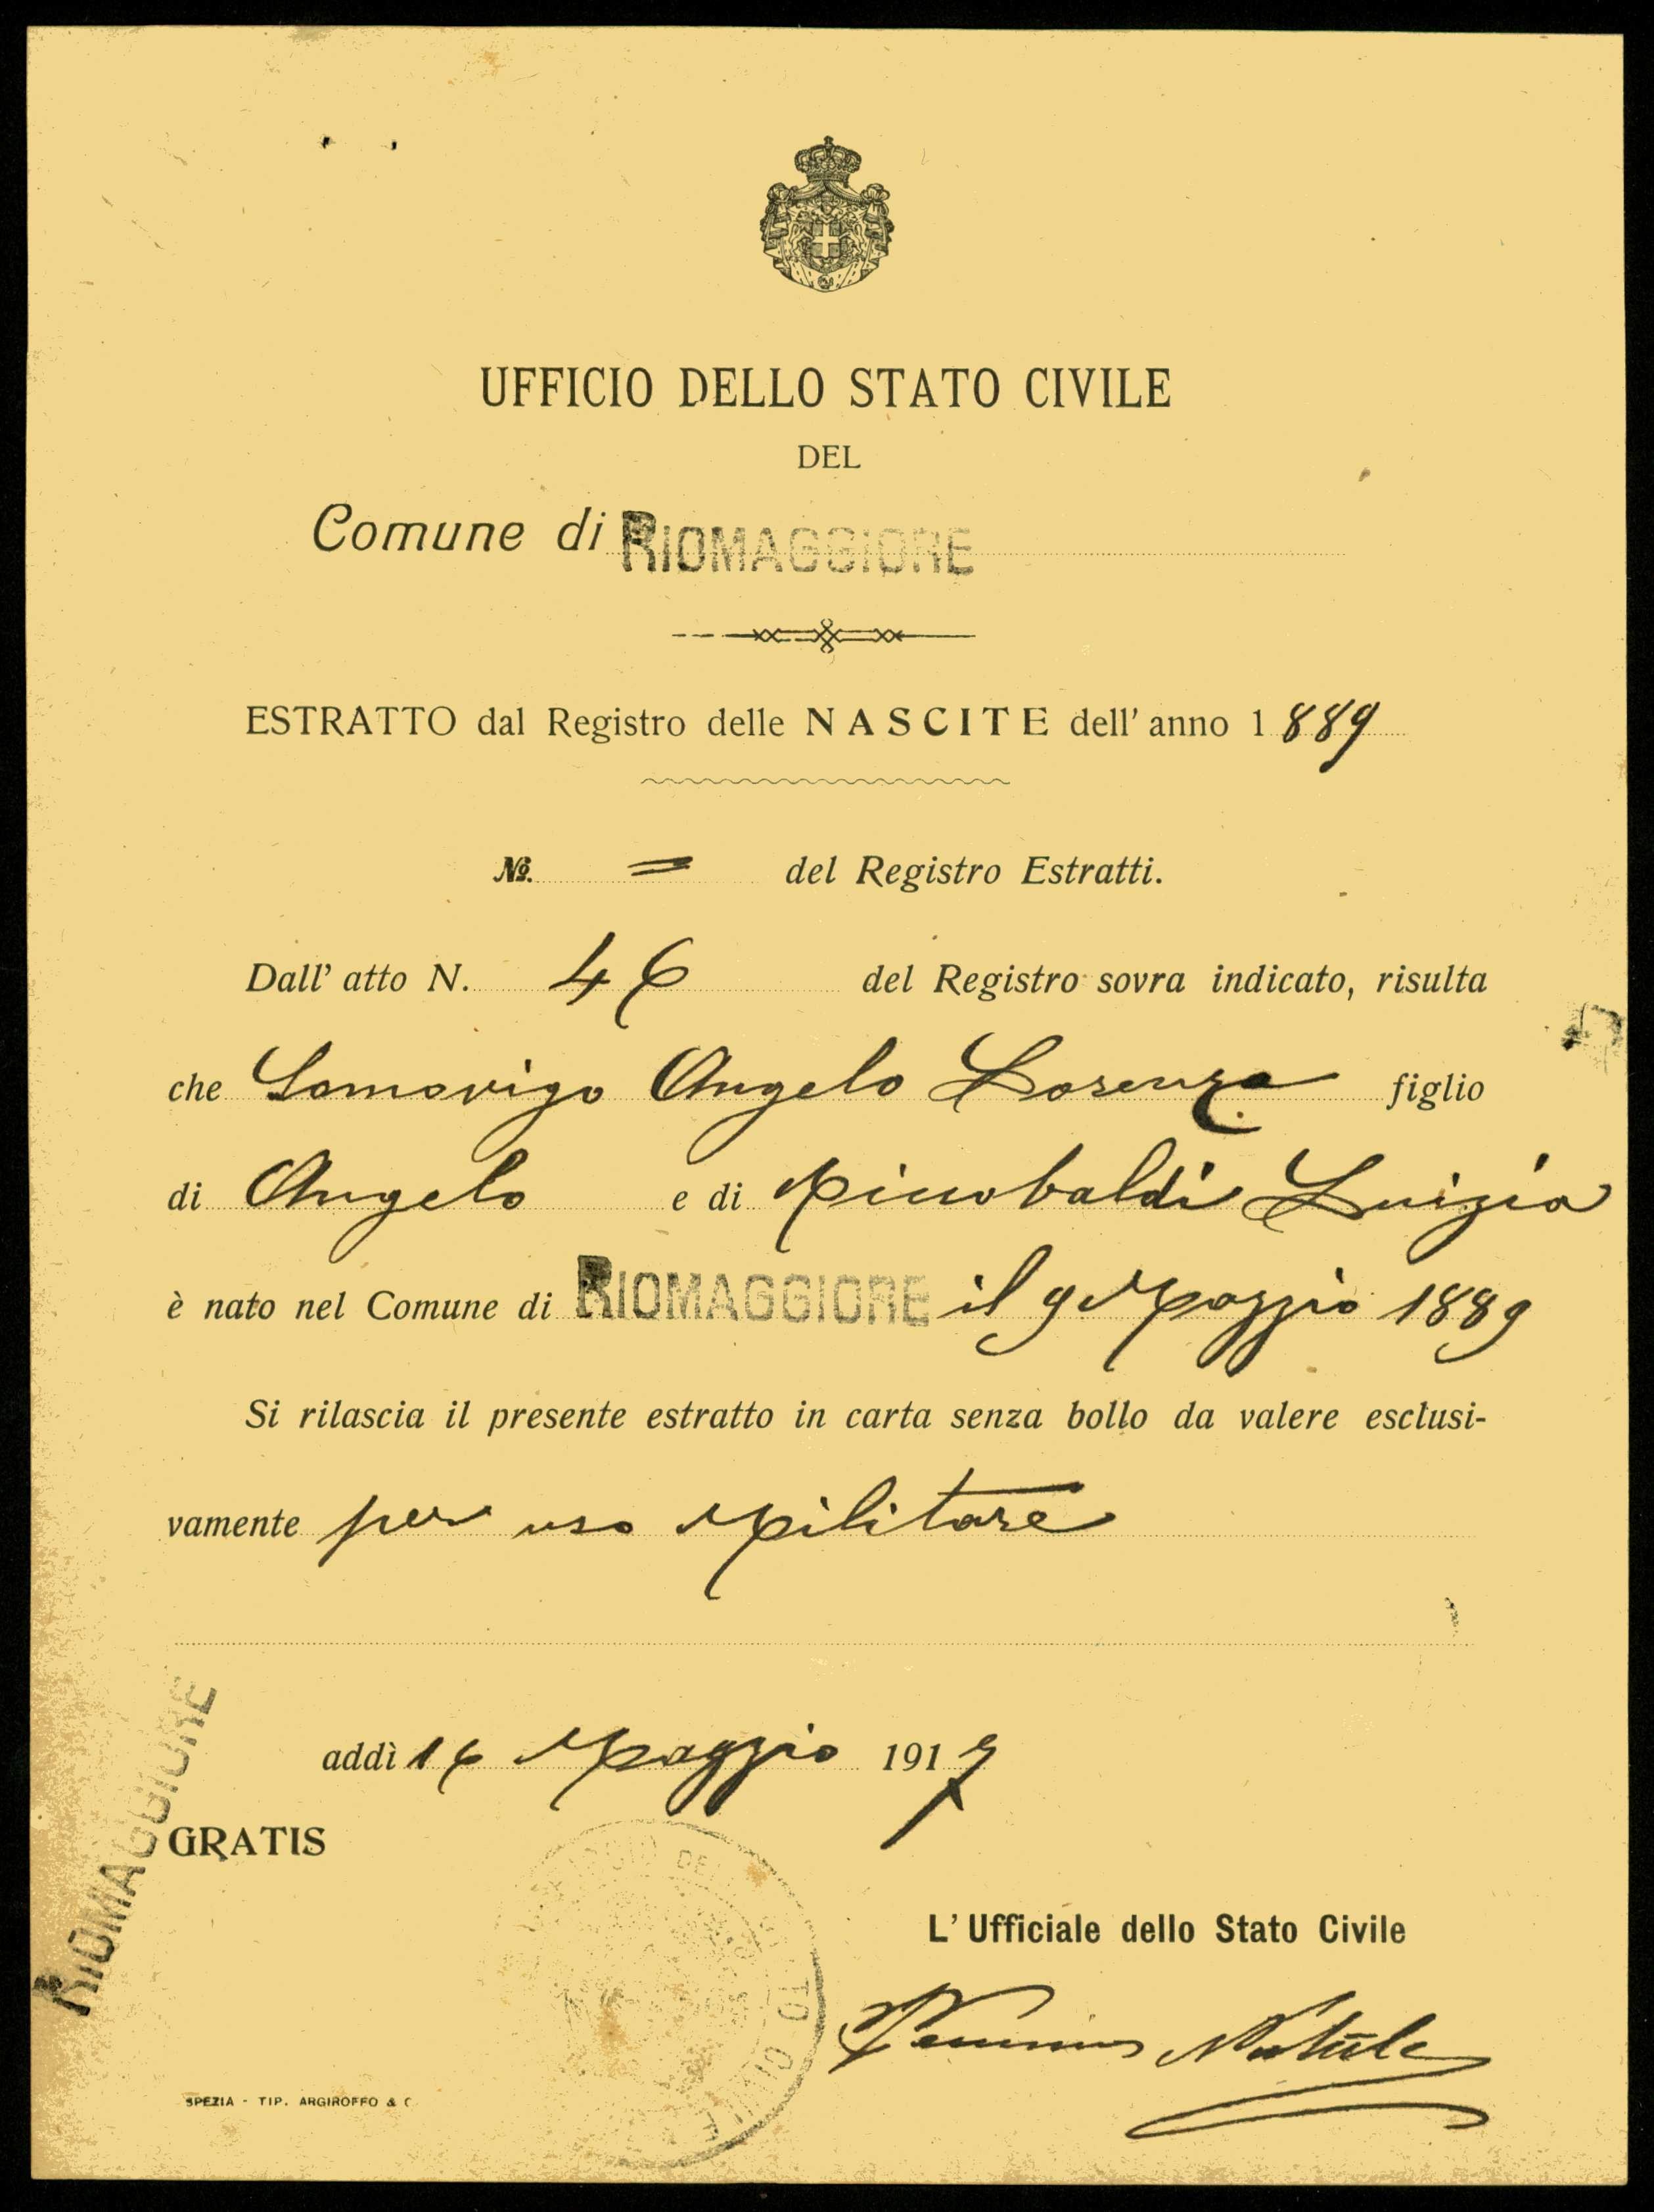 UFFICIO DELLO STATO CIVILE
DEL
Comune di RIOMAGGIORE
ESTRATTO dal Registro delle NASCITE dell' anno 1889
No. = del Registro Estratti.
Dall' atto N. 46 del Registro sovra indicato, risulta
che Somovigo Angelo Lorenzo figlio
di Angelo e di Riccobaldi Luigia
è nato nel Comune di RIOMAGGIORE il 9 Maggio 1889
Si rilascia il presente estratto in carta senza bollo da valere esclusi-
vamente per uso Militare
addì 16 Maggio 1917
RIOMAGGIORE
GRATIS
L' Ufficiale dello Stato Civile
Natale
SPEZIA - TIP. ARGIROFFO & C